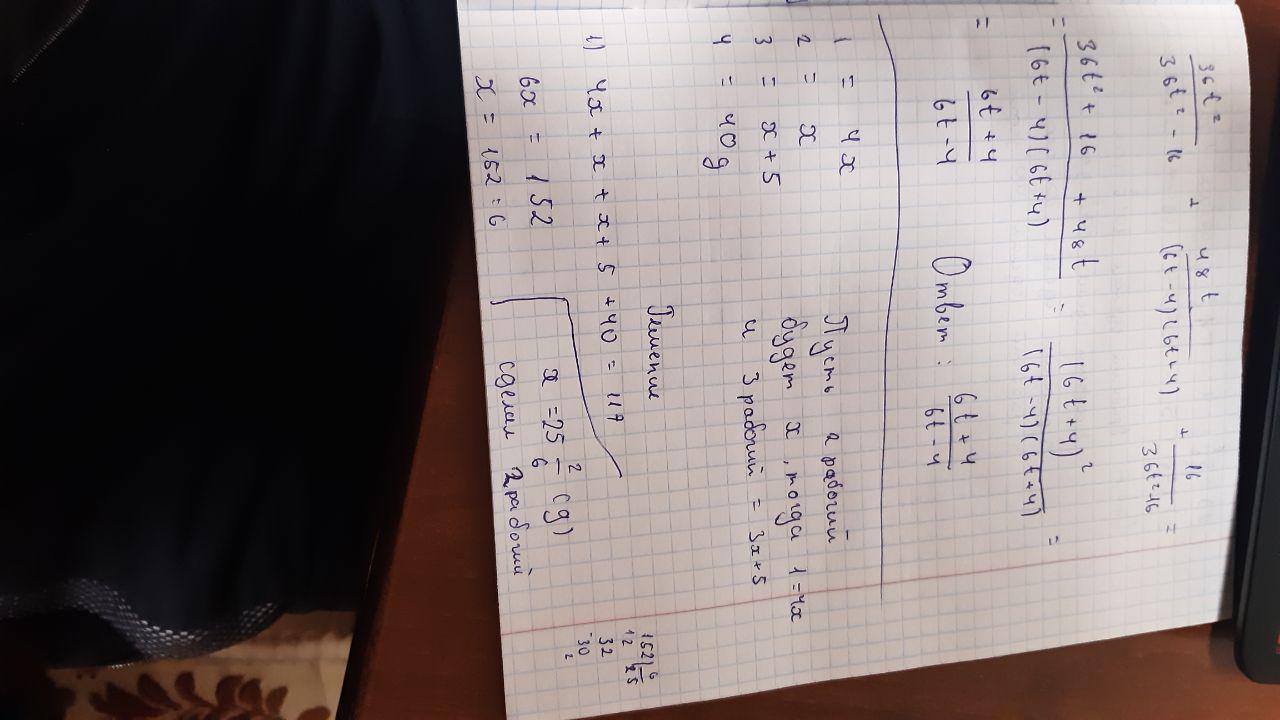 36t² / 36t² - 16 + 48t / (6t - 4)(6t + 4) + 16 / 36t² - 16 =
= 36t² + 16 + 48t / (6t - 4)(6t + 4) = (6t + 4)² / (6t - 4)(6t + 4) =
= 6t + 4 / 6t - 4 Ответ: 6t + 4 / 6t - 4
1 = 4x Пусть 2 рабочий
2 = x будет x, тогда 1 = 4x
3 = x + 5 и 3 рабочий = 3x + 5
4 = 40g
Решение
1) 4x + x + x + 5 + 40 = 117
6x = 152
x = 152 = 6
x = 25 2/6 (g)
сделал 2 рабочий
152 6
12 25
32
-30
2